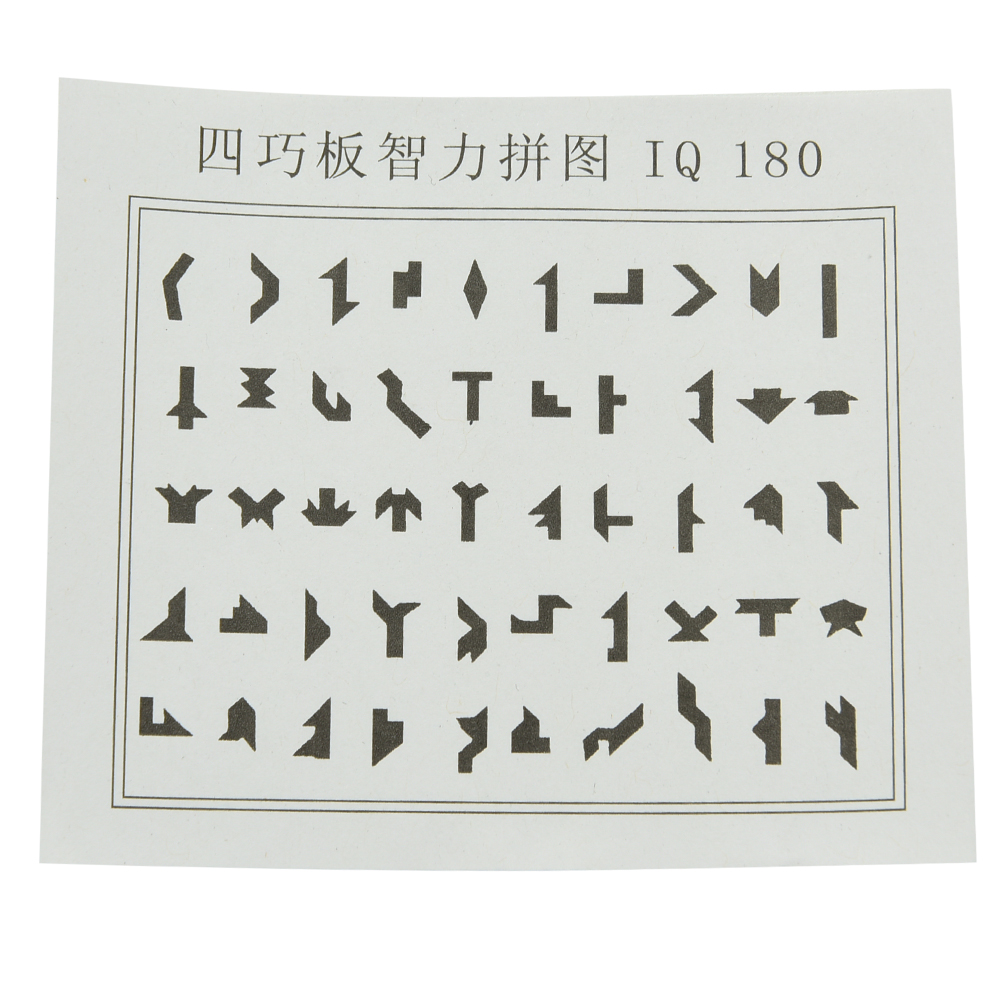 四巧板智力拼图 IQ 180